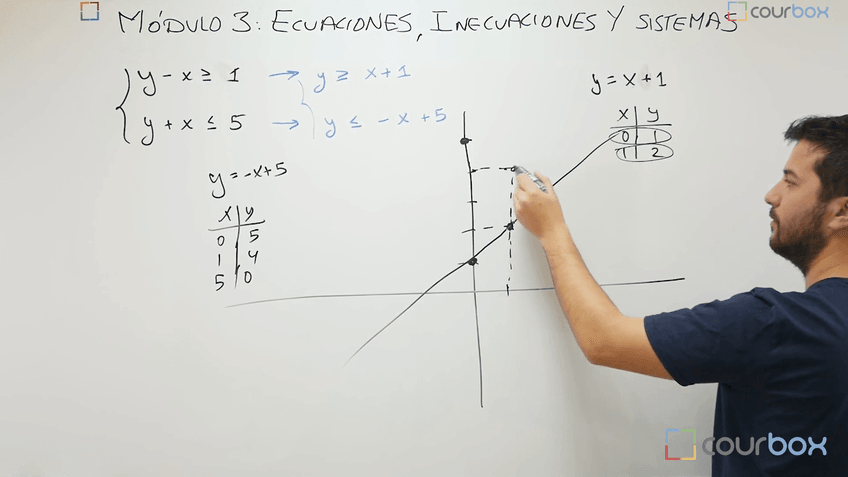 MÓDULO 3: ECUACIONES, INECUACIONES Y SISTEMAS
courbox
y - x ≥ 1 → y ≥ x + 1
y + x ≤ 5 → y ≤ - x + 5
y = x + 1
x y
0 1
1 2
y = -x+5
x y
0 5
1 4
5 0
courbox